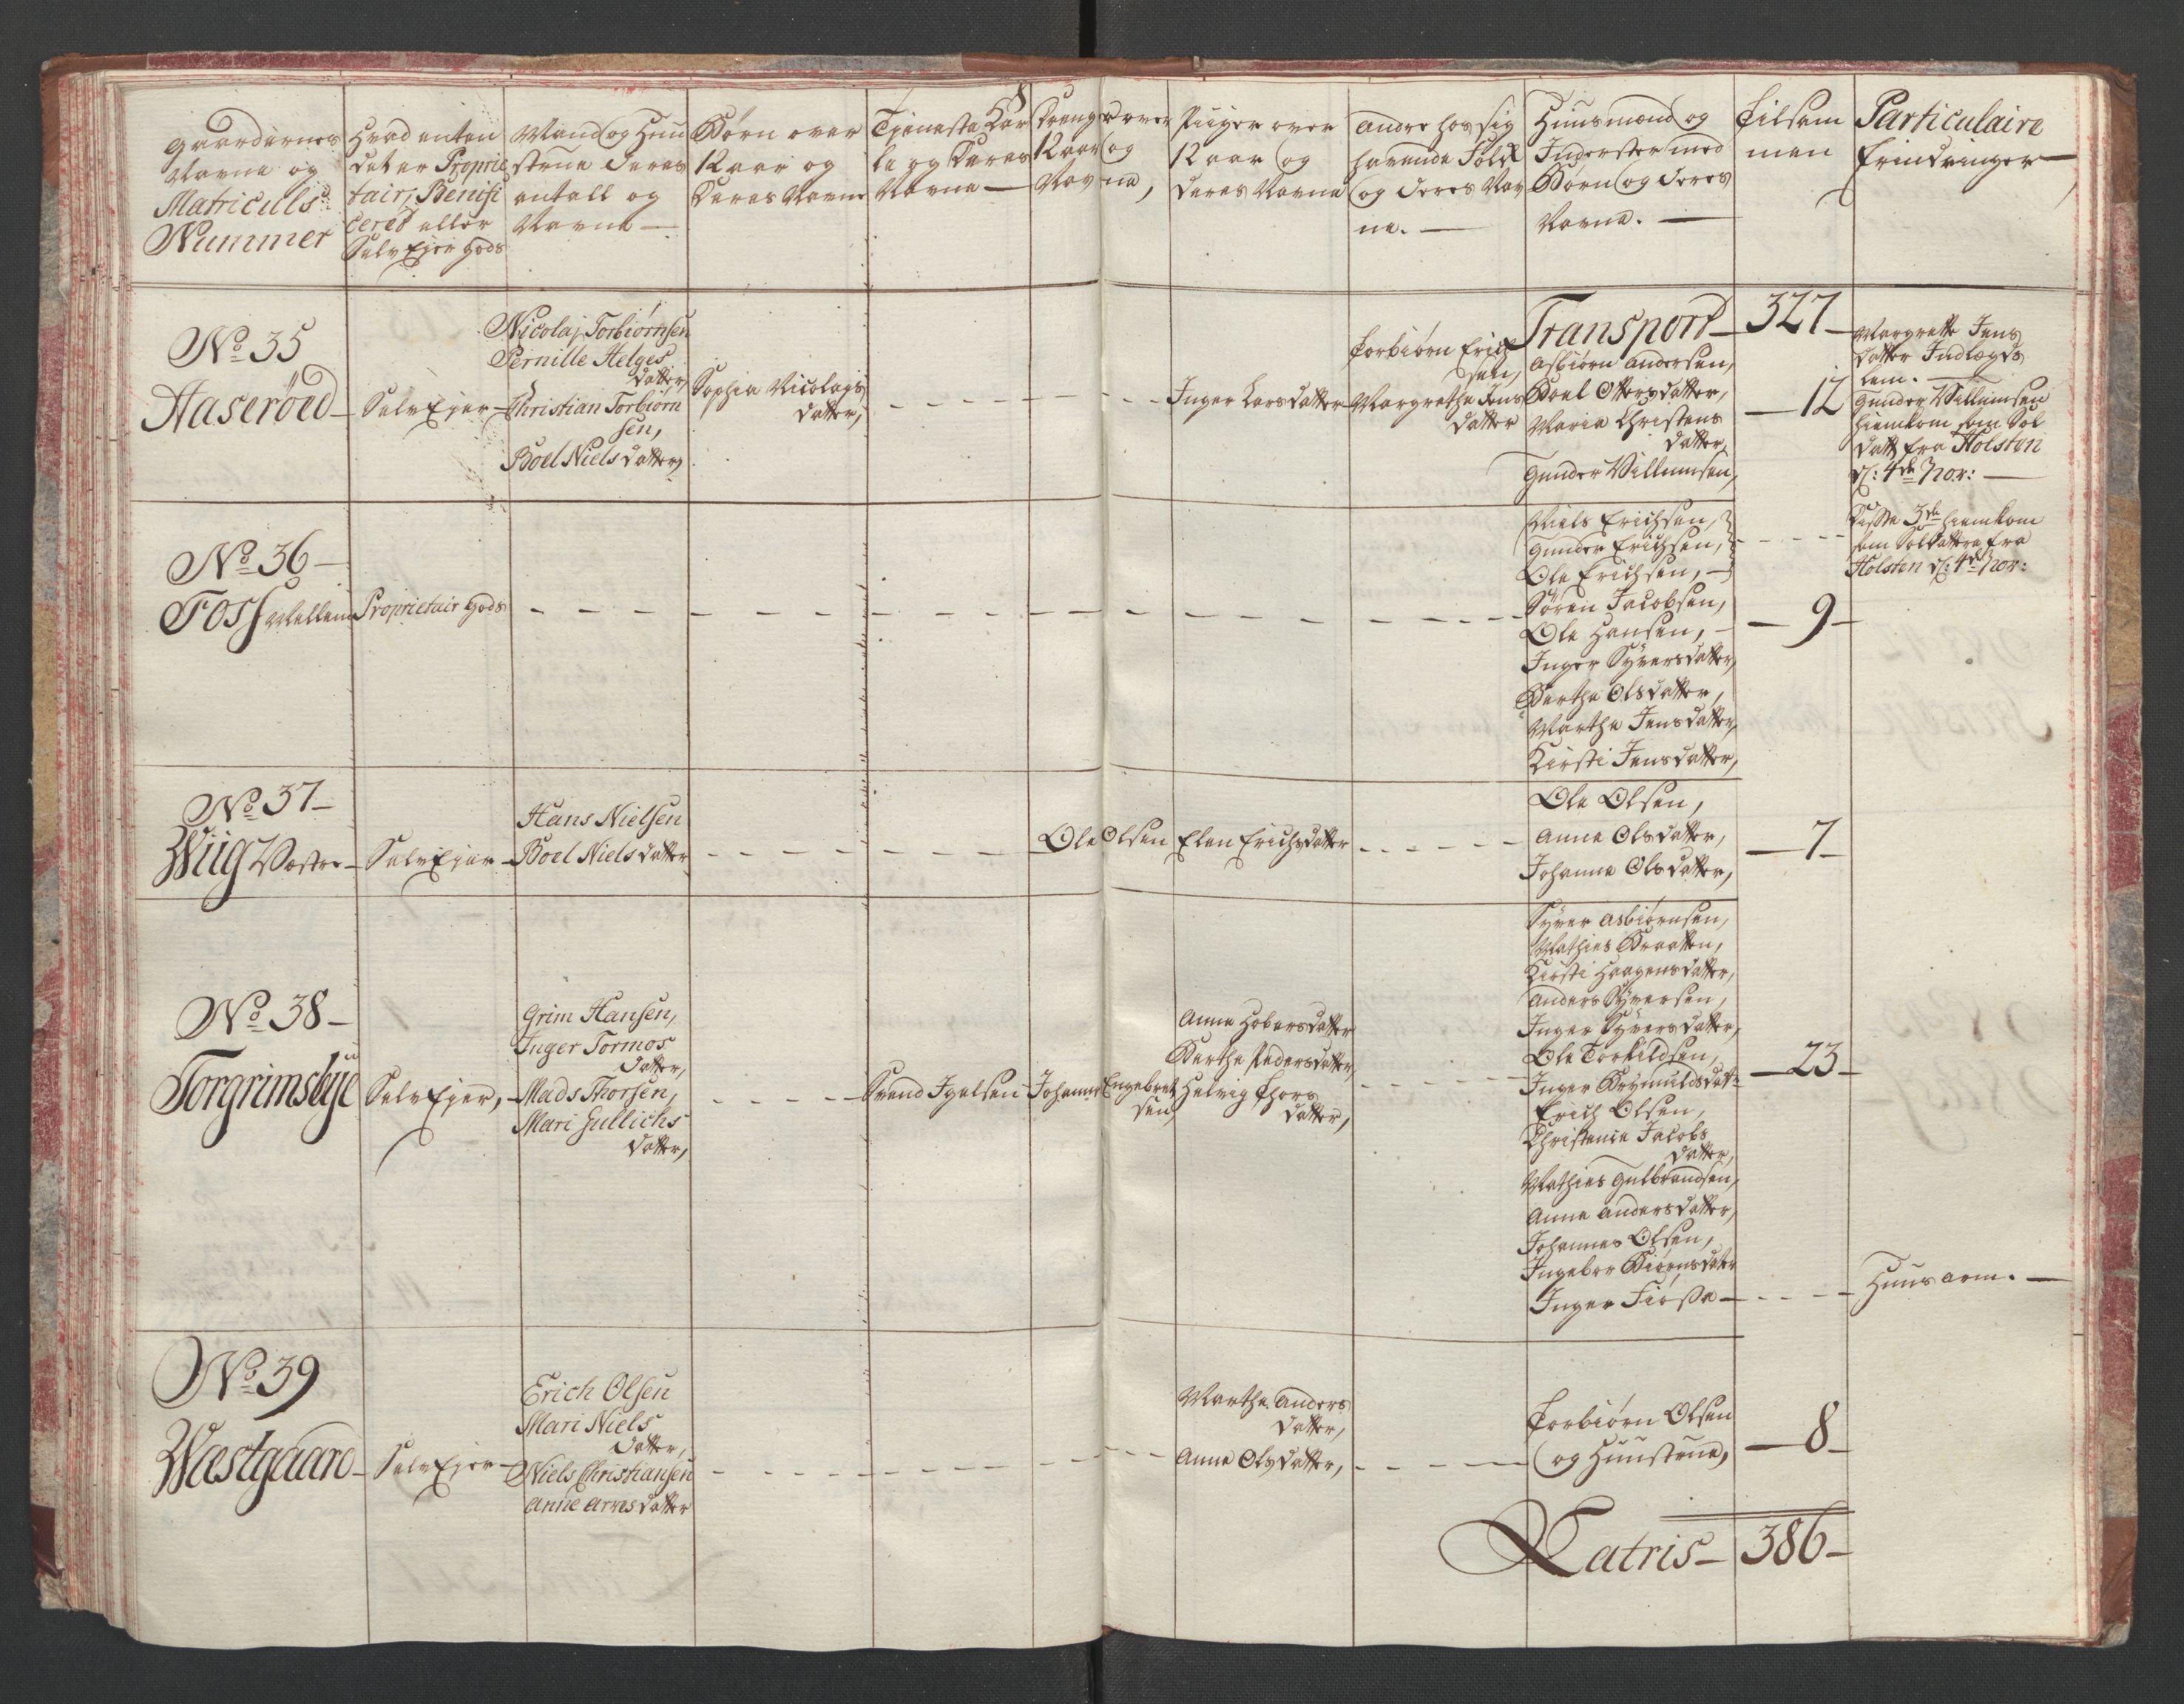 Gaardernes
Navne og
Matriculs
Nummer
Hvad enten
det er Proprie
tair, Benifi
ceret eller
Selv Ejer Gods
Mand og Huu
strue deres
antall og
Navne —
Børn over
12 aar og
deres Navne
Tjeneste Kar
le og deres
Navne —
Drenge over
12 aar og
Navne,
Piiger over
12 aar og
deres Navne
Andre hos sig
havende Folk
og deres Nav
ne. —
Huusmænd og
Inderster med
Børn og deres
Navne. —
Tilsam
men
Particulaire
Erindringer —
Transport — 327 —
No 35
Haseröed —
Selv Ejer —
Nicolaj Torbiørnsen
Pernille Helges
datter,
Christian Torbiørn
sen,
Boel Niels datter,
Sophia Nicolays
datter,
Inger Larsdatter
Torbiørn Erich
sen,
Margrethe Jens
datter
Asbiørn Andersen,
Boel Ottersdatter,
Maria Christens
datter,
Gunder Villumsen,
— 12
Margrethe Jens
datter Indlægds
lem. —
Gunder Villumsen
hiemkom som Sol
datt fra Holsten
d: 4de Nov: —
No 36 —
Foss Mellem
Proprietair Gods
Niels Erichsen,
Gunder Erichsen,
Ole Erichsen, —
Søren Jacobsen,
Ole Hansen, —
Inger Syversdatter,
Berthe Olsdatter,
Marthe Jensdatter,
Kirsti Jensdatter,
— 9 —
Disse 3de hiemkom
som Soldattere fra
Holsten d: 4de Nov:
No 37 —
Wiig Vestre —
Selv Ejer —
Hans Nielsen
Boel Niels datter
Ole Olsen
Elen Erichsdatter
Ole Olsen,
Anne Olsdatter,
Johanne Olsdatter,
— 7 —
No 38 —
Torgrimsbye
Selv Ejer, —
Grim Hansen,
Inger Tormos
datter,
Mads Thorsen,
Mari Gullichs
datter,
Svend Igelsen
Johannes Engebret
sen,
Anne Hobersdatter
Berthe Pedersdatter,
Helvig Thors
datter,
Syver Asbiørnsen,
Mathias Braaten,
Kirsti Haagensdatter,
Anders Syversen,
Inger Syversdatter,
Ole Torkildsen,
Inger Brÿnuldsdat
Erich Olsen,
Christence Jacobs
datter,
Mathies Gulbrandsen,
Anne Andersdatter,
Johannes Olsen,
Ingebor Biørnsdatter
Inger —
— 23 —
Huus arm. —
No 39
Wæstgaard —
Selv Ejer —
Erich Olsen
Mari Niels
datter,
Niels Christiansen
Anne Arnesdatter
Marthe Anders
datter,
Anne Olsdatter,
Torbiørn Olsen
og Huustrue,
— 8 —
Latris — 386 —